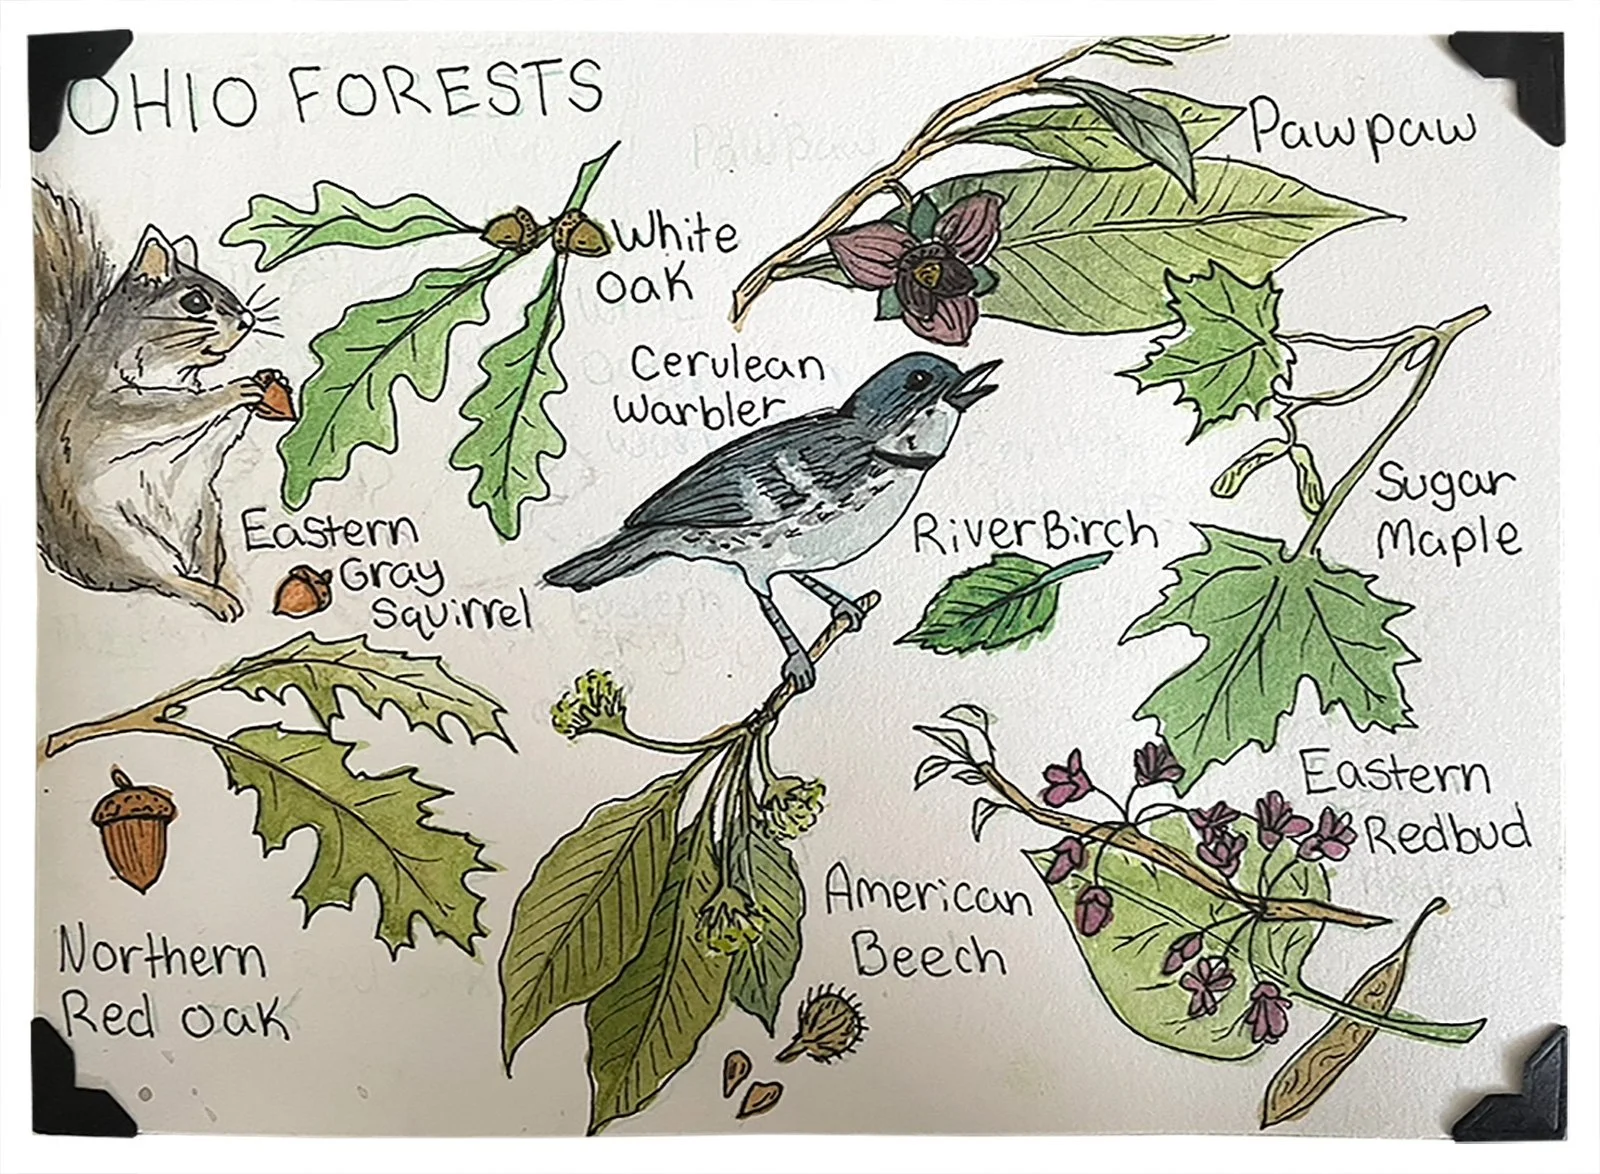 OHIO FORESTS
Pawpaw
White
Oak
Cerulean
Warbler
Sugar
Maple
River Birch
Eastern
Gray
Squirrel
Eastern
Redbud
American
Beech
Northern
Red Oak